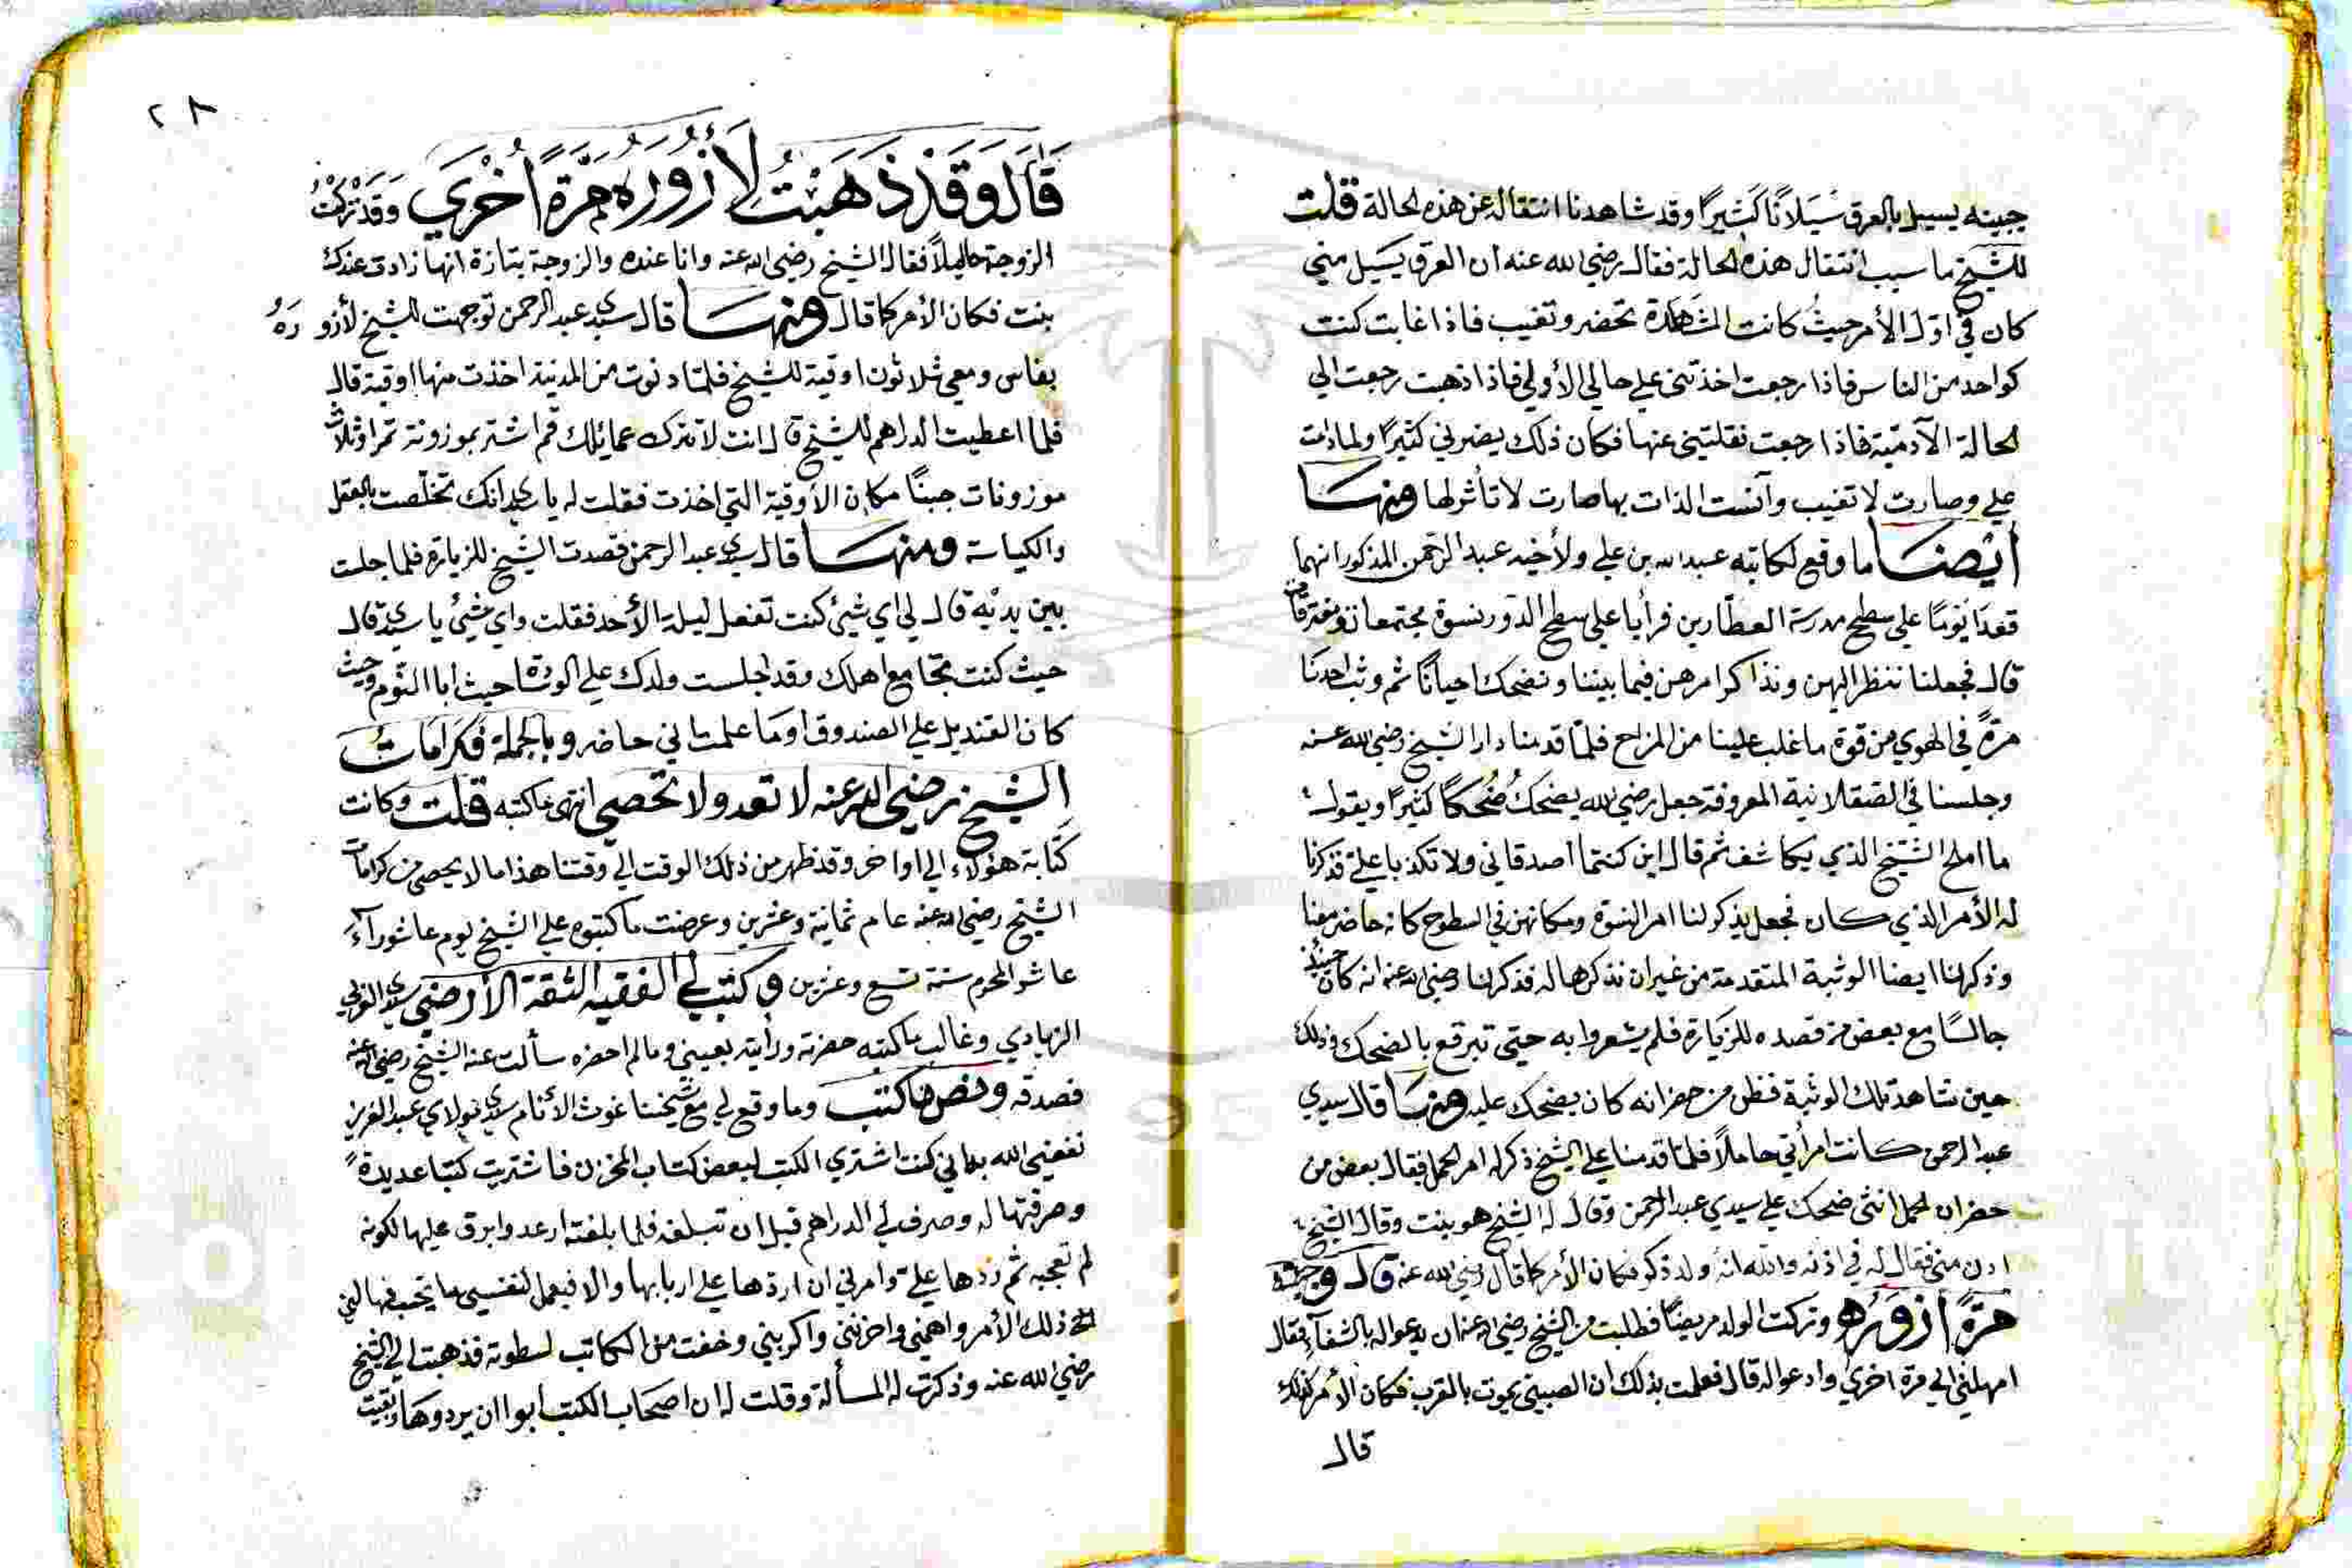 جبينه يسيل بالعرق سيَلانًا كَثيرًا وقد شاهدنا انتقاله عن هذه الحالة قلت
للشيخ ما سبب انتقال هذه الحالة فقال رضي الله عنه ان العرق يَسيل مني
كان في اوّل الأمر حيثُ كانت المشَاهَدة تحضر وتغيب فاذا غابت كنت
كواحد من الناس فاذا رجعت اخذتني على حالي الأولي فاذا ذهبت رجعت الي
الحالة الآدميّة فاذا رجعت نقلتني عنها فكان ذلك يضرني كثيرًا ولما دامت
علي وصارت لا تغيب وآنست الذات بها صارت لا تأثر لها ومنهَا
أيْضنَا ما وقع لكاتبه عبد الله بن علي ولأخيه عبد الرحمن المذكور انهما
قعدَا يَومًا على سطح مدرسة العطارين فرأيا على سطح الدّور نسوة مجتمعات ومفترقات
قال فجعلنا ننظر اليهن ونذاكر امرهن فيما بيننا ونضحك احيانًا ثم وثب احدنا
مرّةً في الهوي من قوة ما غلب علينا من المزاح فلمّا قدمنا دار الشيخ رضي الله عنه
وجلسنا في الصّقلابية المعروفة جعل رضي الله يضحك ضُحكًا كثيرًا ويقول
ما املح الشيخ الذي يكاشف ثم قال اين كنتما اصدقاني ولا تكذبا عليّ فذكرنا
له الأمر الذي كان فجعل يذكر لنا امر النسوة ومكانهن في السطوح كانه حاضر معنا
وذكر لنا ايضا الوثبة المتقدمة من غير ان نذكرها له فذكر لنا رضي الله عنه انه كان حينئذ
جالسًا مع بعض من قصده للزيارة فلم يشعروا به حتى تبرقع بالضحك وذلك
حين شاهد تلك الوثبة فظن من حضر انه كان يضحك عليه ومنهَا قال سيدي
عبد الرحمن كانت امرأتي حاملاً فلمّا قدمنا على الشيخ ذكر له امر الحمل فقال بعض من
حضر ان الحمل انثى ضحك على سيدي عبد الرحمن وقال له الشيخ هو بنت وقال الشيخ
ادن مني فقال له في اذنه والله انه ولد ذكر فكان الأمر كما قال رضي الله عنه قال وجئته
مَرّةً ازوَرُه وتركت الولد مريضًا فطلبت من الشيخ رضي الله عنه ان يدعو له بالشفاء فقال
امهلني الي مرة اخرى وادعو له قال فعلمت بذلك ان الصبي يموت بالقرب فكان الأمر كذلك
قال
٢٨
قَالَ وَقَدْ ذَهَبْتُ لأَزُورَهُ مَرّةً اُخْرَي وَقَدْ تَرَكْتُ
الزوجة حاملاً فقال الشيخ رضي الله عنه وانا عنده والزوجة بتازة انها زادت عندك
بنت فكان الأمر كما قال ومنهَا قال سيدي عبد الرحمن توجهت للشيخ لأزورَهُ
بفاس ومعي ثلاثون اوقية للشيخ فلمّا دنوت من المدينة اخذت منها اوقية قال
فلما اعطيت الدراهم للشيخ قال انت لا تترك عمائلك قم اشتر بموزونة تمرا وثلاث
موزونات جبنًا مكان الأوقية التي اخذت فقلت له يا سيدي انك تخلّصت بالعقل
والكياسة ومنهَا قال سيدي عبد الرحمن قصدت الشيخ للزيارة فلما جلست
بين يديْه قال لي اي شيْء كنت تفعل ليلة الأحد فقلت واي شيْء يا سيدي قال
حيث كنت تجامع اهلك وقد اجلست ولدك على الوسادة حيث ابا النّوم وحيث
كان القنديل على الصندوق اومَا علمت اني حاضر وبالجملة فكَرَامَاتُ
الشيخ رضي الله عنه لا تعد ولا تحصي انتهى ما كتبه قلت وكانت
كتَابة هؤلاء الي اواخر وقد ظهر من ذلك الوقت الي وقتنا هذا ما لا يحصى من كرامات
الشيخ رضي الله عنه عام ثمانية وعشرين وعرضت ما كتبوه على الشيخ يوم عاشوراء
عاشر المحرم سنة تسع وعشرين وكتب لي الفقيه الثقة الأرضي سيدي العربي
الزيادي وغالب ما كتبه حضرته ورأيته بعيني وما لم احضره سألت عنه الشيخ رضي الله عنه
فصدقه ونصّ ما كتب وما وقع لي مع شيخنا غوث الأنام سيدي مولاي عبد العزيز
نفعني الله به اني كنت اشتري الكتب لبعض كتاب المخزن فاشتريت كتبًا عديدةً
وصرفتها له وصرف لي الدراهم قبل ان تبلغه فلما بلغته ارعد وابرق عليها لكونه
لم تعجبه ثم ردّها عليّ وامرني ان اردّها على اربابها والا فيعمل لنفسي ما يحب فيها
ذلك الأمر واهمّني واحزنني واكربني وخفت من الكاتب لسطوته فذهبت الي الشيخ
رضي الله عنه وذكرت له المسألة وقلت له ان اصحاب الكتب ابوا ان يردوهَا وبقيت